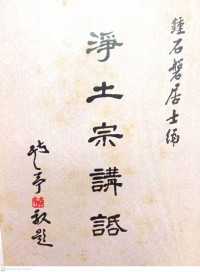 鍾石磐居士編
淨土宗講話
敬題